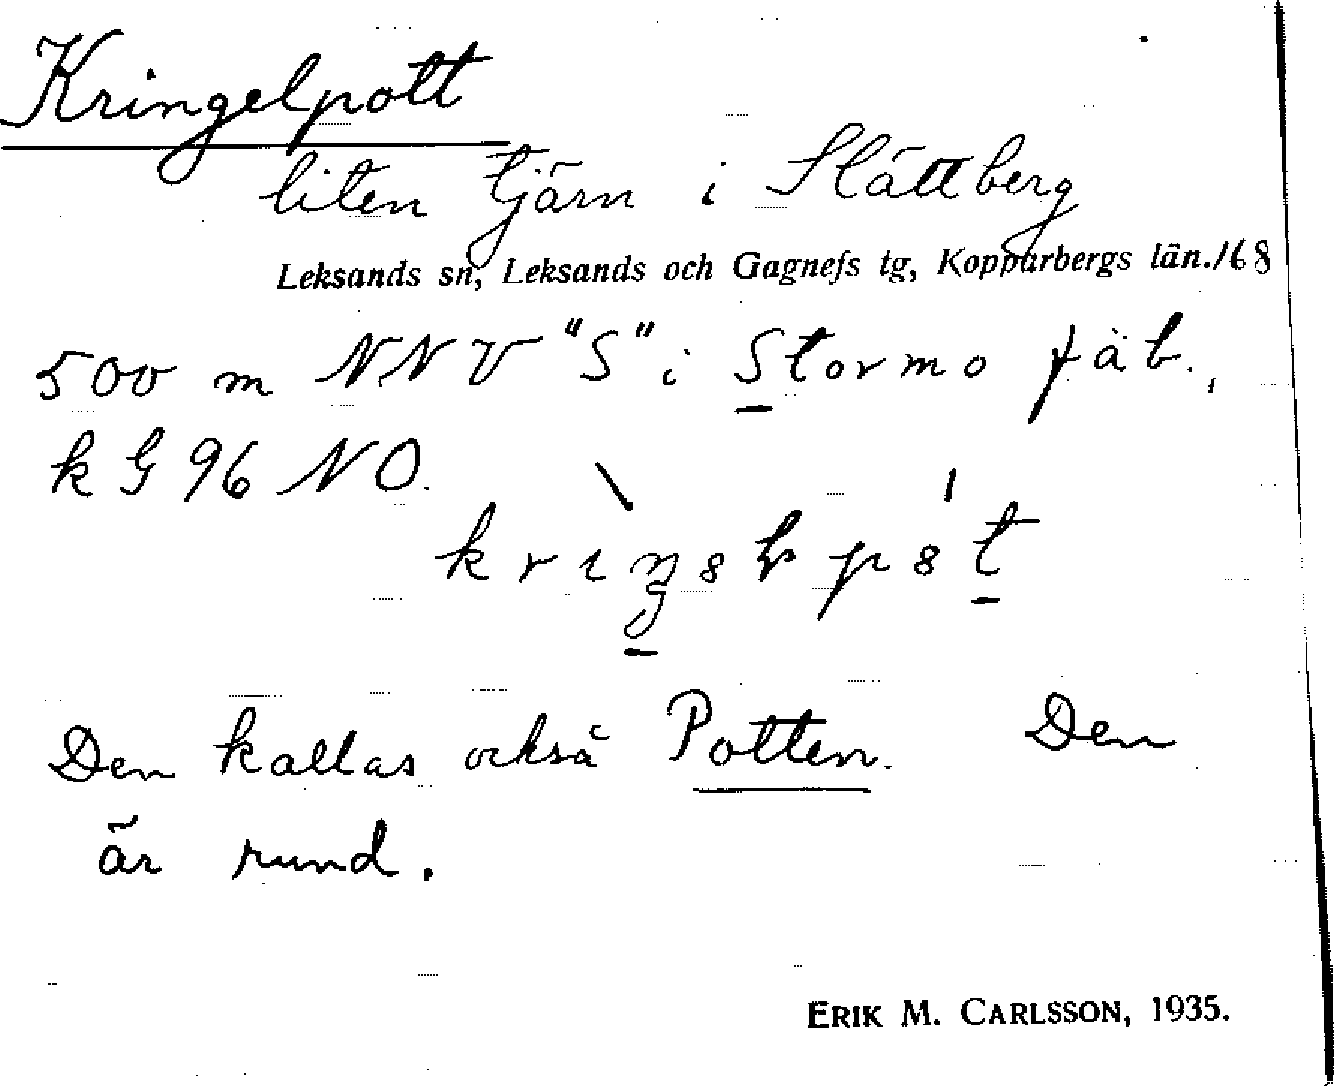 Kringelpott
liten tjärn i Slättberg
Leksands sn, Leksands och Gagnefs tg, Kopparbergs län. 168
500 m NNV "S" i Stormo fäb.,
k G 96 NO.
Den kallas också Potten. Den
är rund.
ERIK M. CARLSSON, 1935.